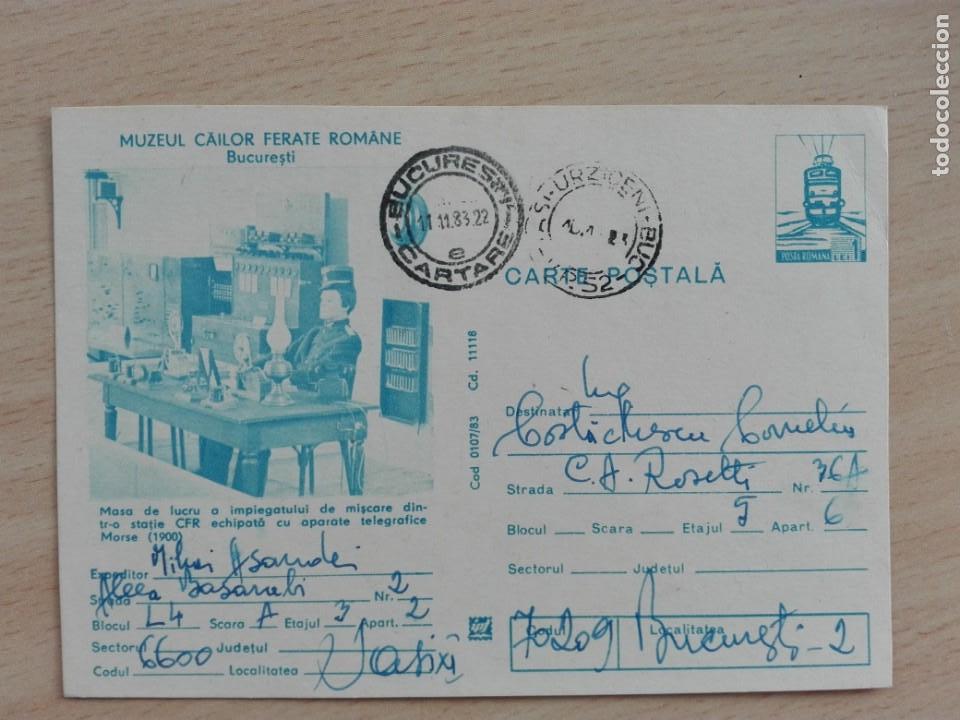 MUZEUL CĂILOR FERATE ROMÂNE
București
BUCUREȘTI
11.11.83.22
e
CARTARE
ȘI-URZICENI-BUC
52
POSTA ROMANA
CARTE POȘTALĂ
Masa de lucru a impiegatului de mișcare din-
tr-o stație CFR echipată cu aparate telegrafice
Morse (1900)
Expeditor Mihai Asandei
Strada Aleea Basarabi Nr. 2
Blocul L4 Scara A Etajul 3 Apart. 2
Sectorul Județul
Codul 6600 Localitatea Iași
Cod 0107/83 Cd. 11118
Destinatar Ing
Costăchescu Corneliu
Strada C.A. Rosetti Nr. 36A
Blocul Scara Etajul 5 Apart. 6
Sectorul Județul
Codul 70209 Localitatea București-2
todocoleccion